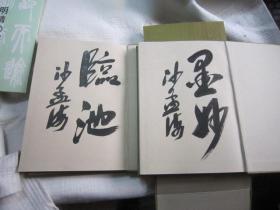 臨池
沙孟海
墨妙
沙孟海
明清